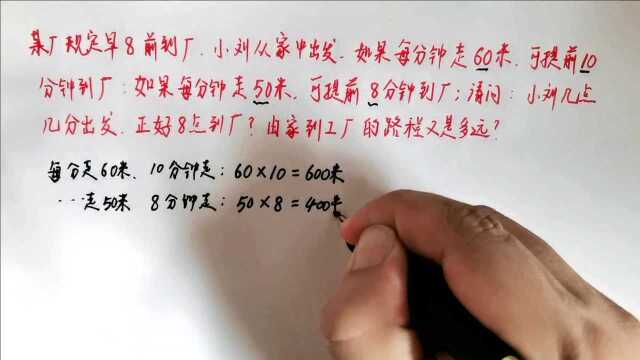 某厂规定早8前到厂、小刘从家中出发、如果每分钟走60米、可提前10
分钟到厂；如果每分钟走50米、可提前8分钟到厂；请问：小刘几点
几分出发、正好8点到厂？由家到工厂的路程又是多远？
每分走60米、10分钟走：60×10=600米
…走50米 8分钟走：50×8=400米